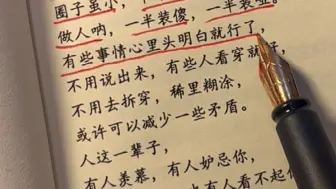 圈子虽小，
做人呐，一半装傻，一半装哑。
有些事情心里头明白就行了
不用说出来，有些人看穿就好，
不用去拆穿，稀里糊涂，
或许可以减少一些矛盾。
人这一辈子，
有人羡慕，有人妒忌你，
也有人看不起你